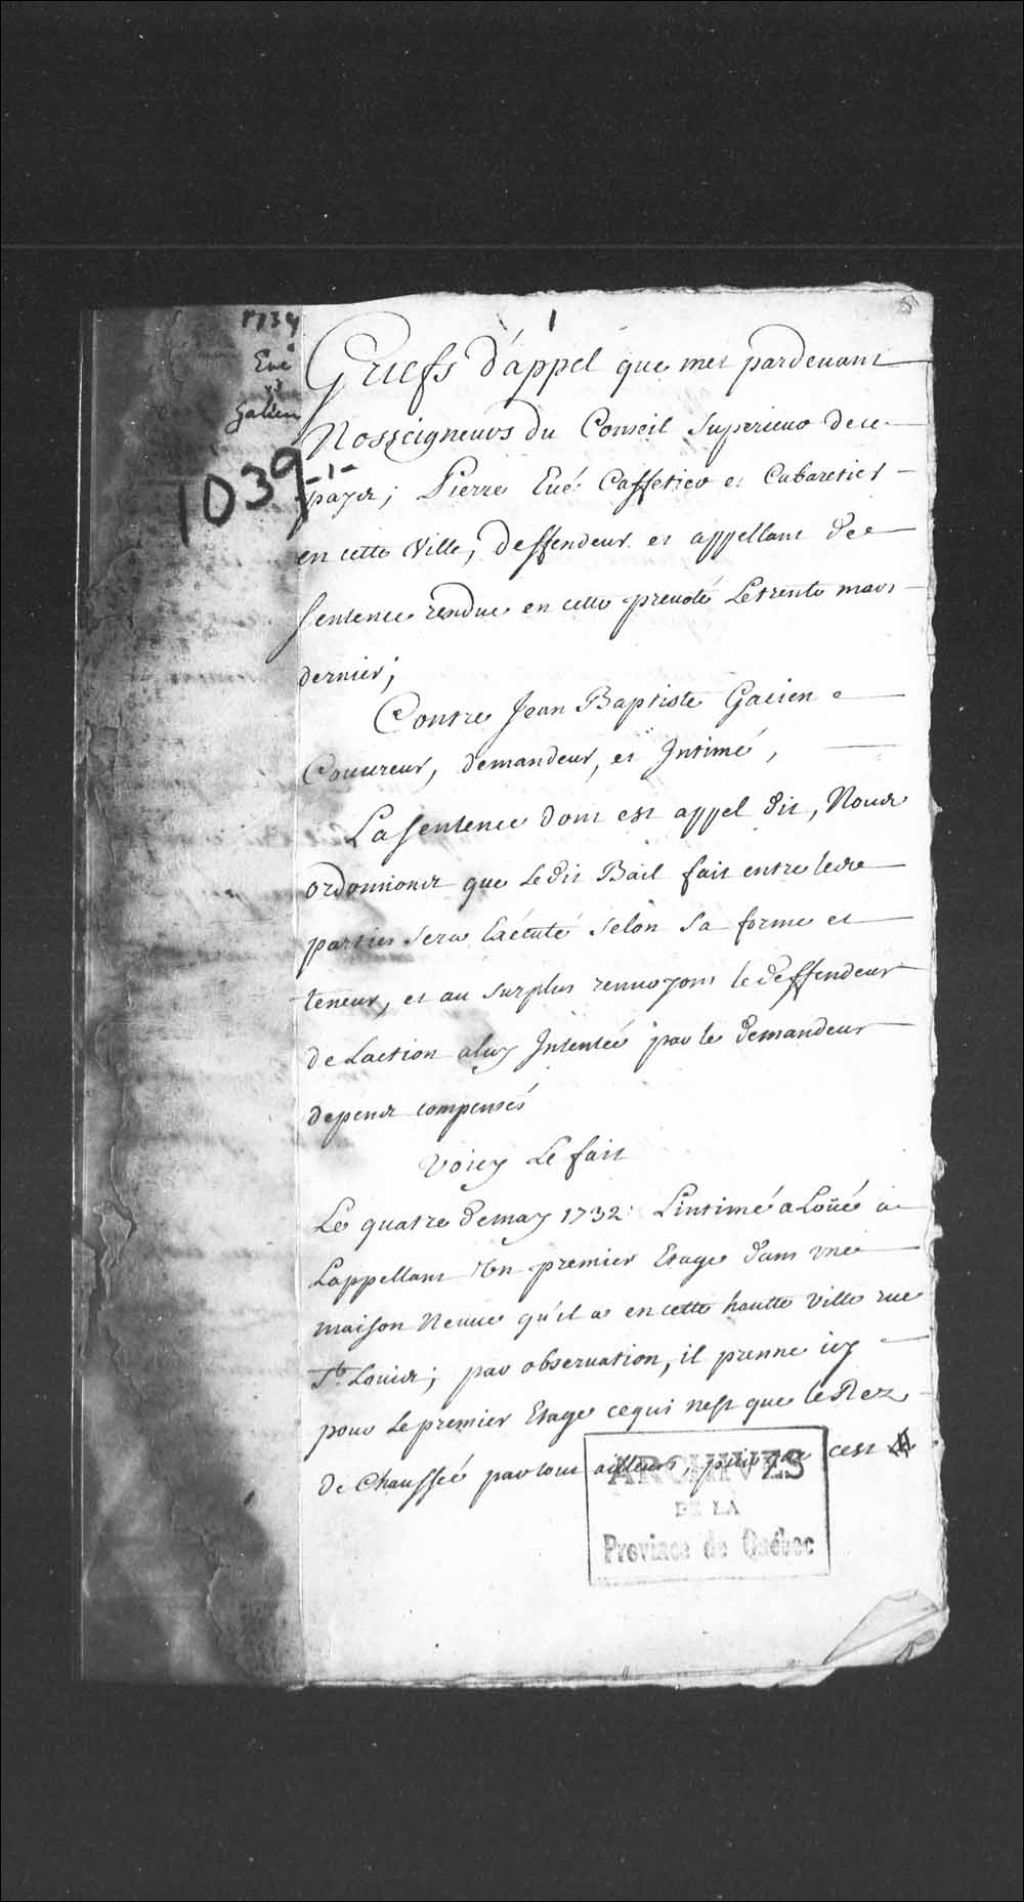 1734
Evé
vs
Galien
1039
-1-
1
Griefs d'appel que met pardevant
Nosseigneurs du Conseil Superieur de ce
payis; Pierre Evé Caffetier et Cabaretier
en cette Ville, deffendeur et appellant de
Sentence rendue en cette prevoté Le trente mars
dernier;
Contre Jean Baptiste Galien
Couvreur, demandeur, et Intimé,
La Sentence dont est appel dit, Nous
ordonnons que Ledit Bail fait entre les
parties sera Exécuté selon sa forme et
teneur, et au surplus renvoyons le deffendeur
de Laction a luy Intentée par le demandeur
depens compensés
Voicy Le fait
Le quatre de may 1732. Lintimé a Loüé a
Lappellant Un premier Etage dans une
maison Neuve qu'il a en cette haulte Ville rue
St. Louis; par observation, il prenne icy
pour Le premier Etage ce qui nest que le Rez
de Chaussée par tout ailleurs, puisque cest
ARCHIVES
DE LA
Province de Québec